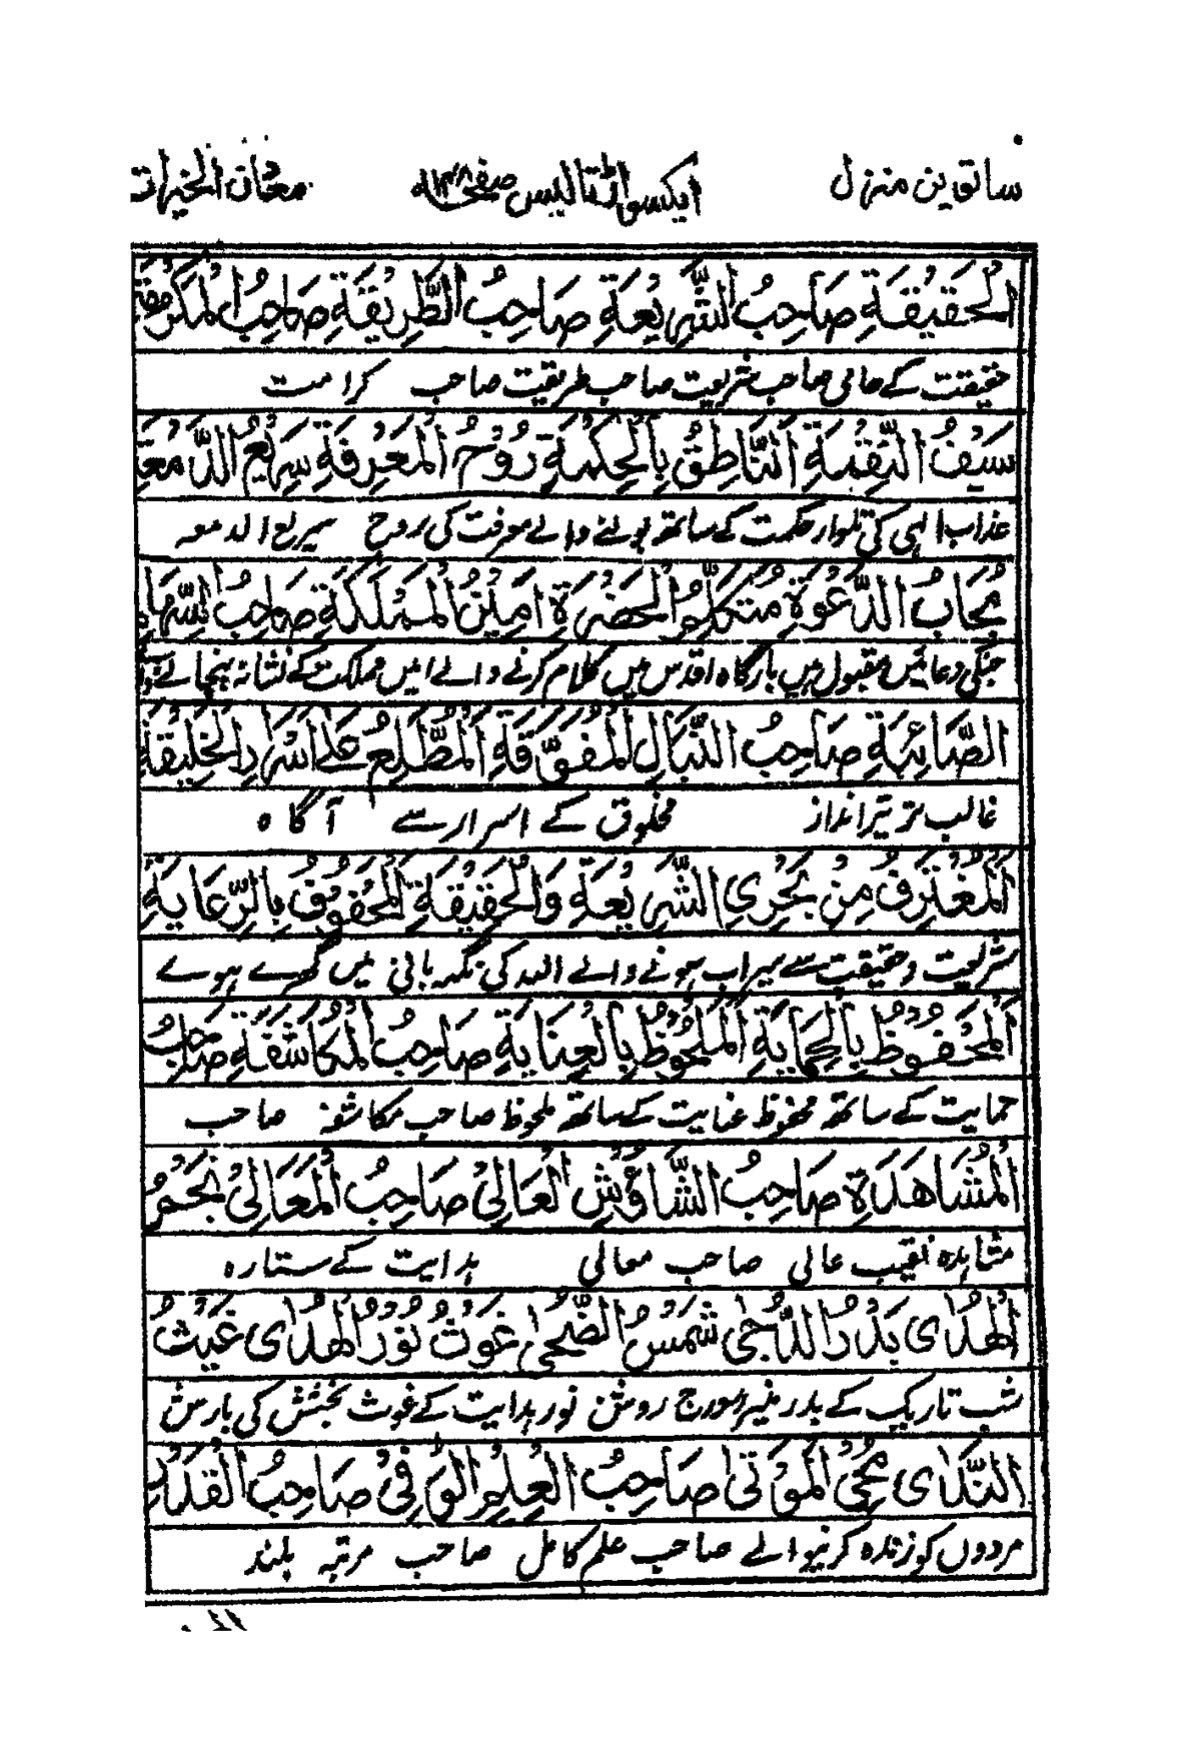 ساتویں منزل ایکسو اڑتالیس صفحہ ۱۴۸ معدن الخیرات
الْحَقِيْقَةِ صَاحِبُ الشَّرِيْعَةِ صَاحِبُ الطَّرِيْقَةِ صَاحِبُ الْمَكْرُمَةِ
حقیقت کے حامی صاحب شریعت صاحب طریقت صاحب کرامت
سَيْفُ النِّقْمَةِ اَلنَّاطِقُ بِالْحِكْمَةِ رُوْحُ الْمَعْرِفَةِ سَرِيْعُ الدَّمْعَةِ
عذاب الٰہی کی تلوار حکمت کے ساتھ بولنے والے معرفت کی روح سریع الدمعہ
مُجَابُ الدَّعْوَةِ مُتَكَلِّمُ الْحَضْرَةِ اَمِيْنُ الْمَمْلَكَةِ صَاحِبُ السِّهَامِ
جنکی دعائیں مقبول ہیں بارگاہ اقدس میں کلام کرنے والے امین مملکت کے نشانہ پہنچانے والے
الصَّائِبَةِ صَاحِبُ النِّبَالِ الْمُفَوَّقَةِ اَلْمُطَّلِعُ عَلٰى اَسْرَارِ الْخَلِيْقَةِ
غالب تر تیر انداز مخلوق کے اسرار سے آگاہ
اَلْمُغْتَرِفُ مِنْ بَحْرَيِ الشَّرِيْعَةِ وَالْحَقِيْقَةِ الْمَحْفُوْفُ بِالرِّعَايَةِ
شریعت و حقیقت سے سیراب ہونے والے اللہ کی نگہبانی میں گھرے ہوے
اَلْمَحْفُوْظُ بِالْحِمَايَةِ اَلْمَلْحُوْظُ بِالْعِنَايَةِ صَاحِبُ الْمُكَاشَفَةِ صَاحِبُ
حمایت کے ساتھ محفوظ عنایت کے ساتھ ملحوظ صاحب مکاشفہ صاحب
الْمُشَاهَدَةِ صَاحِبُ الشَّاوُشِ الْعَالِيْ صَاحِبُ الْمَعَالِيْ نَجْمُ
مشاہدہ نقیب عالی صاحب معالی ہدایت کے ستارہ
الْهُدٰى بَدْرُ الدُّجٰى شَمْسُ الضُّحٰى غَوْثُ نُوْرُ الْهُدٰى غَيْثُ
شب تاریک کے بدر منیر سورج روشن نور ہدایت کے غوث بخشش کی بارش
النَّدٰى مُحْيِ الْمَوْتٰى صَاحِبُ الْعِلْمِ الْوَفِيْ صَاحِبُ الْقَدْرِ
مردوں کو زندہ کرنیوالے صاحب علم کامل صاحب مرتبہ بلند